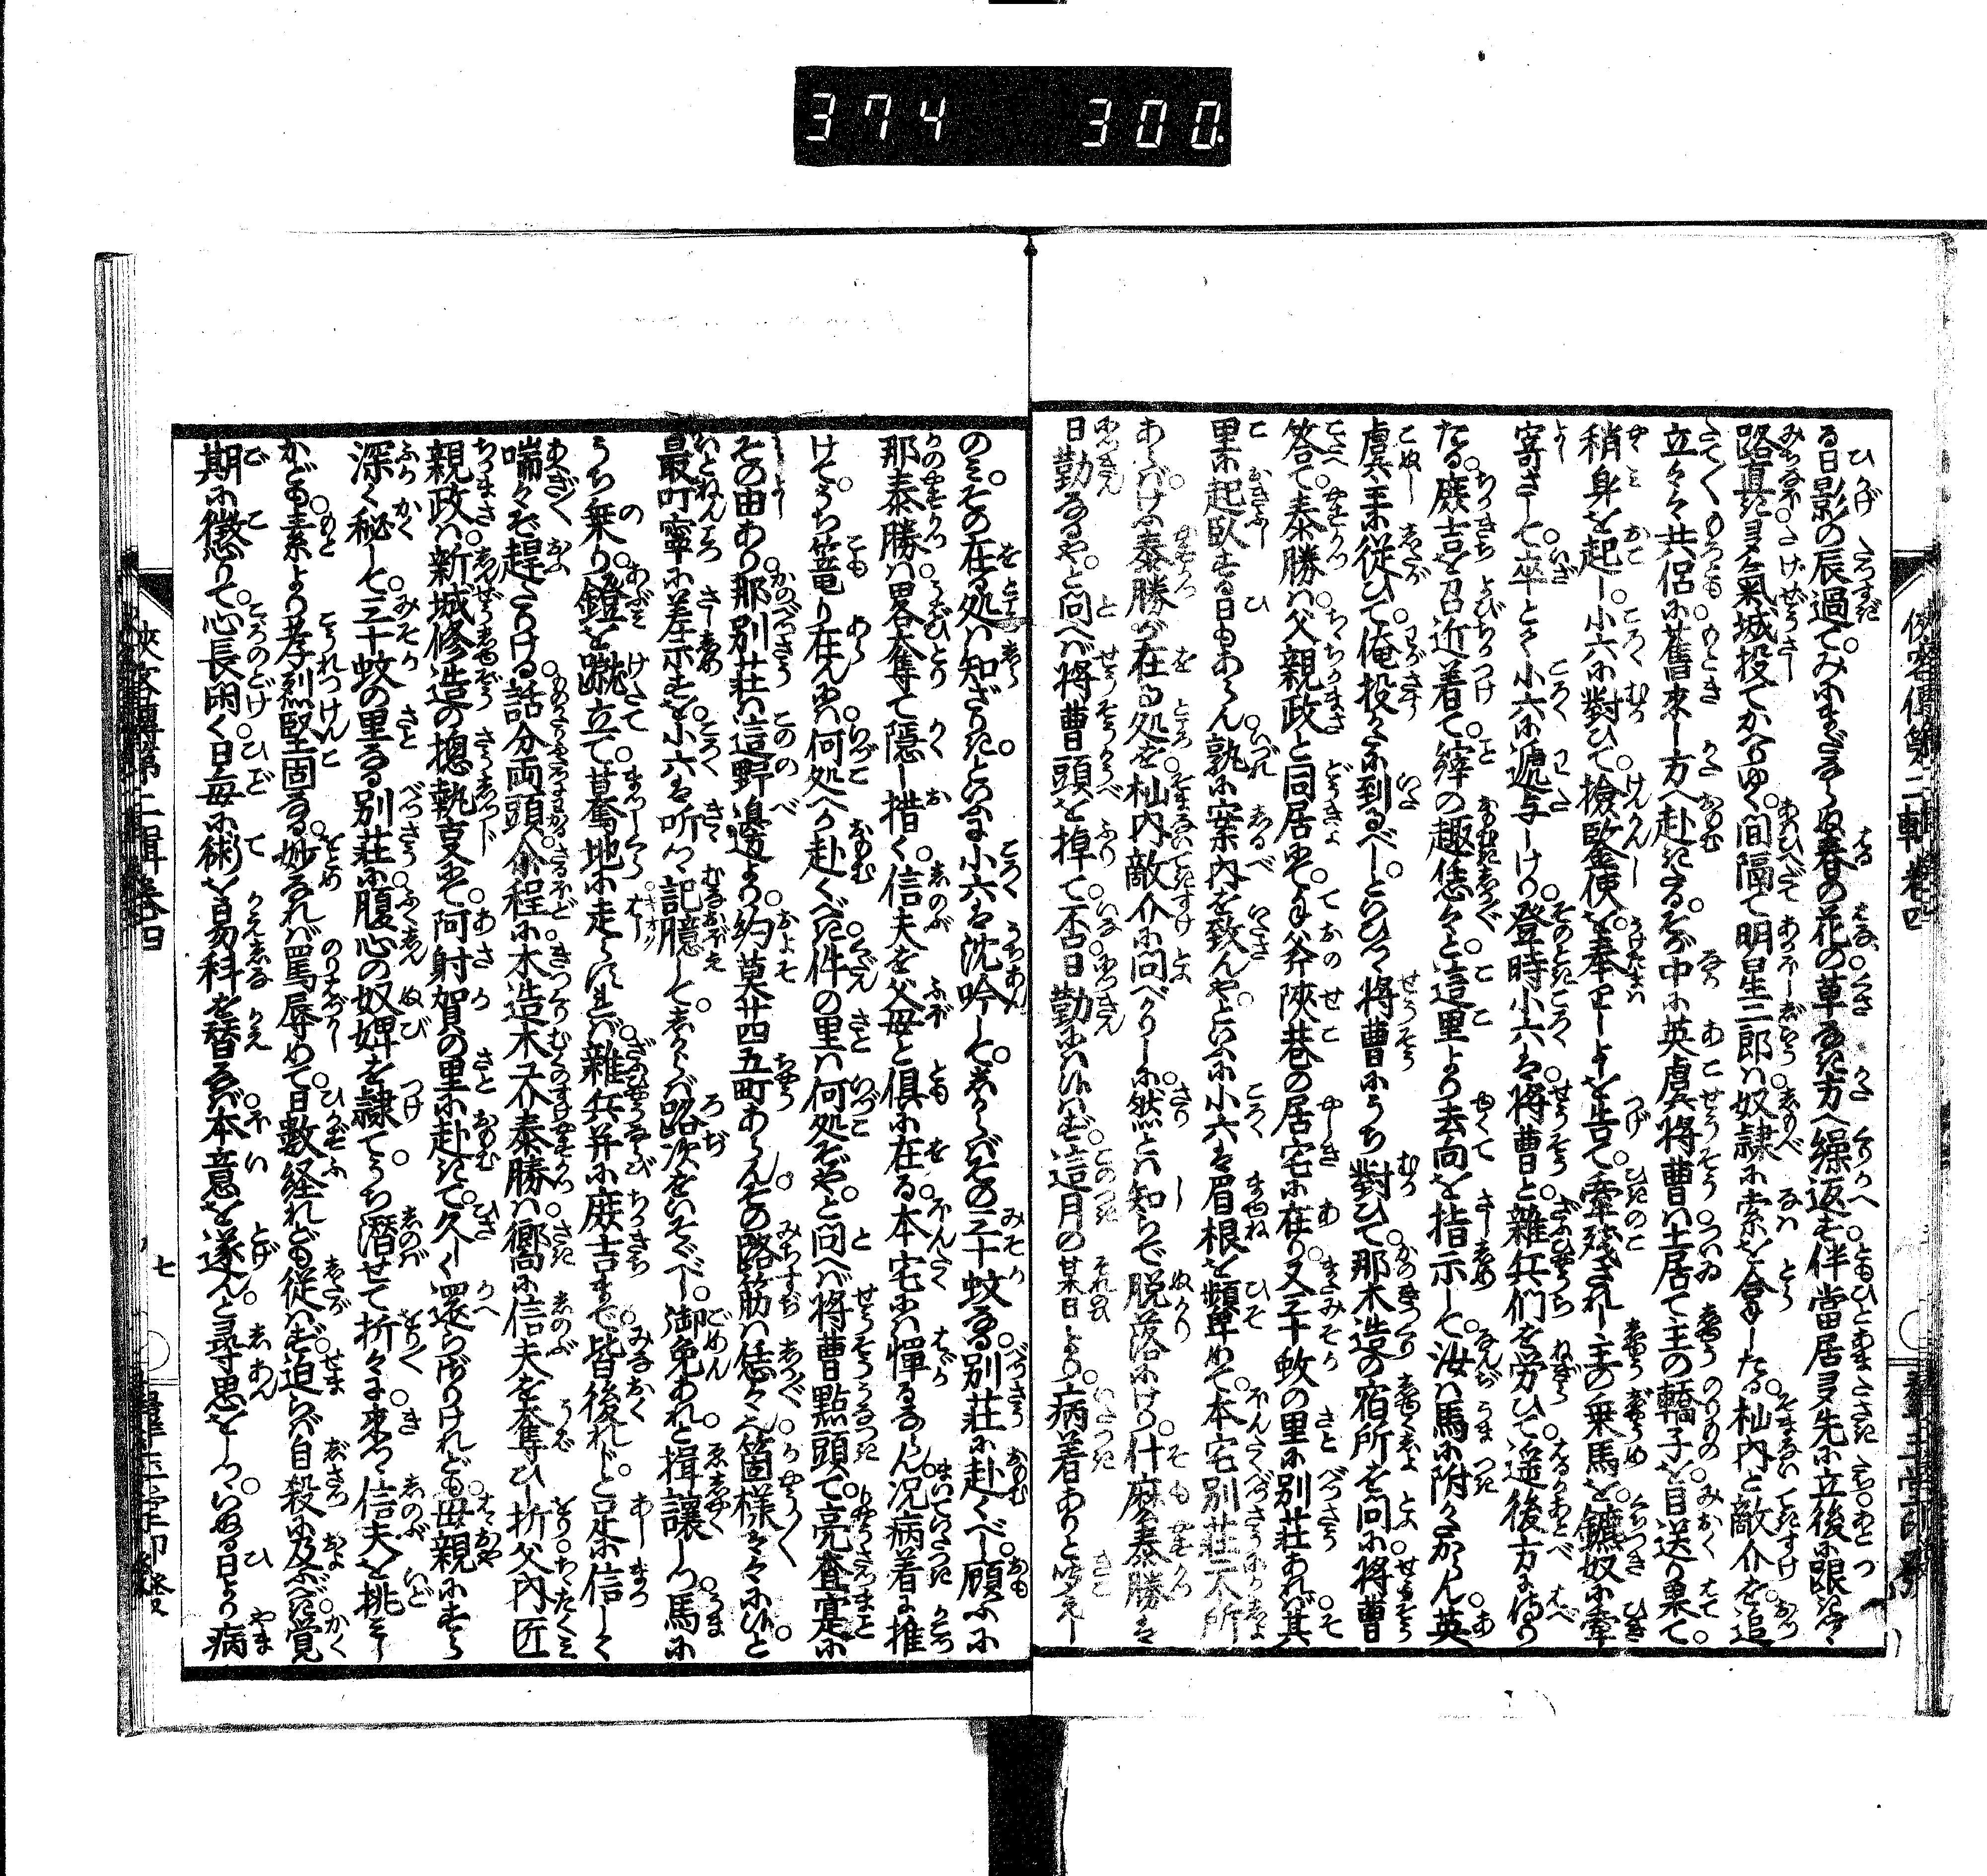 374 300.
る日影の辰過て。みにまばゆからぬ春の花の草なき方へ繰返す伴當居多先に立後に跟つゝ
路直に多氣城投てかへりゆく。間隔て明星三郎ハ奴隷に索を拿したる杣内と敵介を追
立々々共侶に舊來し方へ赴きける。その中に英虞将曹ハ土居て主の轎子を目送り果て
稍身を起し小六に對ひて檢監使を奉りしよしを告て牽残されし主の乗馬を鑣奴に牽
寄さして。坐しとて小六に遞与しけり。登時小六は将曹と雜兵們を労ひて遥後方に侍り
たる蔟吉を召近着て縡の趣恁々と這里より去向を指示して汝ハ馬に附ねかならん英
虞主に從ひて俺投々に到るべしといひつゝ将曹にうち對ひて那木造の宿所を問に将曹
答て泰勝ハ父親政と同居にて多斧陝巷の居宅に在り又三十蚊の里に別荘あれば其
里に起臥する日もあらん孰に案内を致んやといふに小六は眉根を顰めて本宅別荘二个所
あらばけふ泰勝が在る処を杣内敵介に問べかりしに然とハ知らで脱落にけり什麽泰勝は
日勤なるや。と問へば将曹頭を掉て否日勤にハ候はず這月の某日より病着ありと聞えし
のみその在る処ハ知ざりきといふに小六は沈吟して。しからばその三十蚊なる別荘に赴くべし顧ふに
那泰勝ハ畧奪て隱し措く信夫を父母と倶に在る本宅にハ憚るならん况病着に推
けてうち篭り在んにハ何処へか赴くべき件の里ハ何処ぞや。と問へば将曹點頭て亮査寔に
その由あり那別荘ハ這野邊より約莫廿四五町あらんその路筋ハ恁々箇様々々に候ひと
最叮寧に差示すを小六は听つゝ記臆して。しからば路次をいそぐべし御免あれと揖讓しつ馬に
うち乗り鐙を蹴立て驀地に走らすれば雜兵并に蔟吉まで皆後れじと足に信して
喘々ぞ趕ふたりける話分両頭余程に木造木工介泰勝ハ嚮に信夫を奪ひし折父内匠
親政ハ新城修造の摠執事にて阿射賀の里に赴きて久しく還らざりけれども母親にすら
深く秘して三十蚊の里なる別荘に腹心の奴婢を隷てうち潛せて折々に來つゝ信夫を挑みし
かども素より孝烈堅固なる。妙なれば罵辱めて日數経れども從はず迫らば自殺に及ぶべき覚
期に懲りて心長閑く日毎に術を易科を替なば本意を遂んと尋思をしつゝいぬる日より病
侠客傳第二輯巻四
七